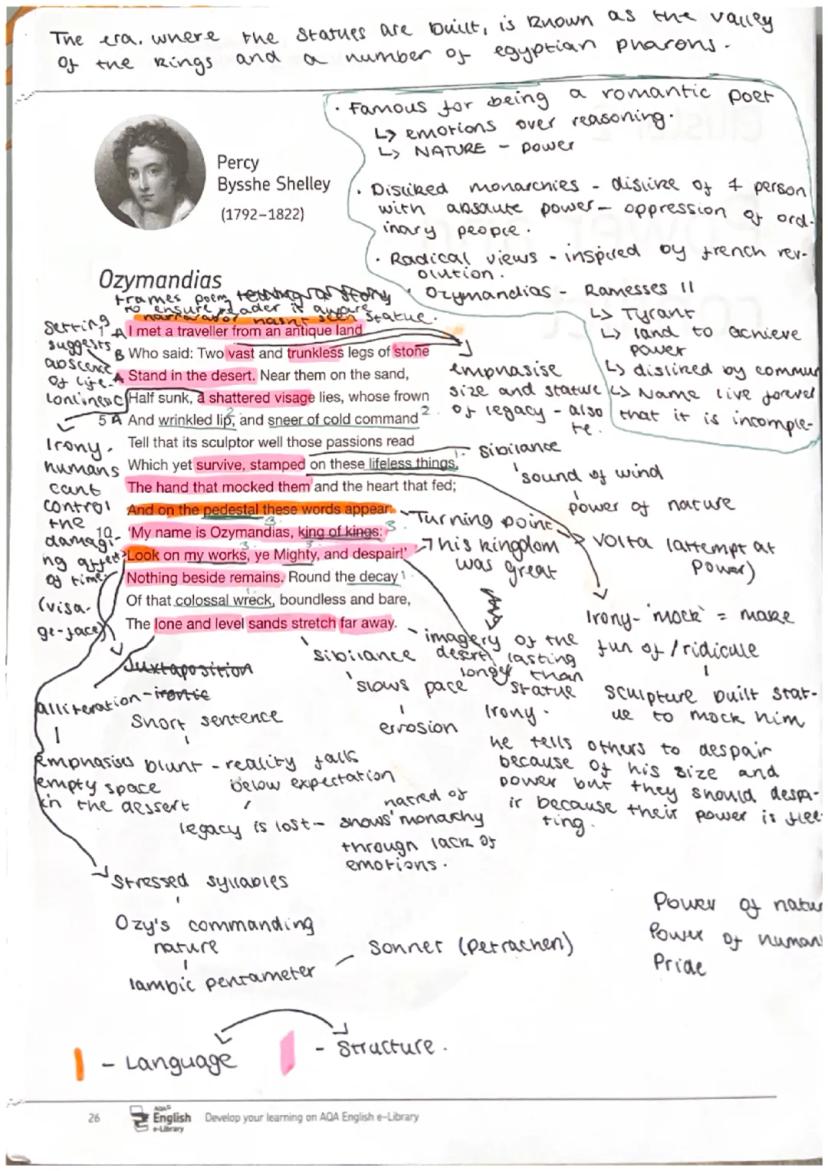 The era, where the statues are built, is known as the valley
of the kings and a number of egyptian pharons.
· Famous for being a romantic poet
↳ emotions over reasoning.
↳ NATURE - power
· Disliked monarchies - dislike of 1 person
with absolute power - oppression of ord-
inary people.
· Radical views - inspired by french rev-
olution.
· Ozymandias - Ramesses II
↳ Tyrant
↳ land to achieve
power
↳ disliked by commun
↳ Name live forever
that it is incomple-
te.
Percy
Bysshe Shelley
(1792–1822)
Ozymandias
frames poem
to ensure reader is aware
narrarator hasn't seen statue.
A I met a traveller from an antique land
B Who said: Two vast and trunkless legs of stone
A Stand in the desert. Near them on the sand,
Half sunk, a shattered visage lies, whose frown
5 A And wrinkled lip, and sneer of cold command
Tell that its sculptor well those passions read
Which yet survive, stamped on these lifeless things,
The hand that mocked them and the heart that fed;
And on the pedestal these words appear:
10 'My name is Ozymandias, king of kings:
Look on my works, ye Mighty, and despair!'
Nothing beside remains. Round the decay
Of that colossal wreck, boundless and bare,
The lone and level sands stretch far away.
setting
suggests
abscence
of life-
lonliness
Irony-
humans
cant
control
the
damagi-
ng affect
of time
(visa-
ge-face)
emphasise
size and stature
of legacy - also
sibilance
'sound of wind
power of nature
Turning point
volta (attempt at
power)
his kingdom
was great
Irony- 'mock' = make
fun of / ridicule
sculpture built stat-
ue to mock him
imagery of the
desert lasting
longer than
statue
Irony-
he tells others to despair
because of his size and
power but they should despa-
ir because their power is flee-
ting.
sibilance
slows pace
errosion
Juxtaposition
alliteration - ironic
Short sentence
emphasises
empty space
in the dessert
blunt - reality falls
below expectation
legacy is lost - shows hatred of
monarchy
through lack of
emotions.
Stressed syllables
Ozy's commanding
nature
Iambic pentameter
Sonnet (Petrachen)
Power of natu
Power of human
Pride
- Language
- Structure.
26
AQA
English
e-Library
Develop your learning on AQA English e-Library